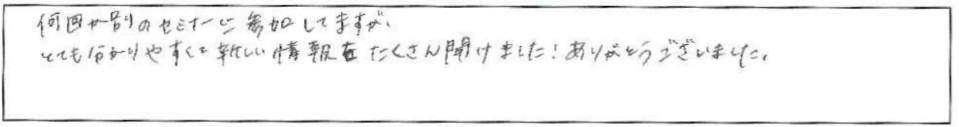 何回か別のセミナーに参加してますが、
とても分かりやすくて新しい情報をたくさん聞けました!ありがとうございました。